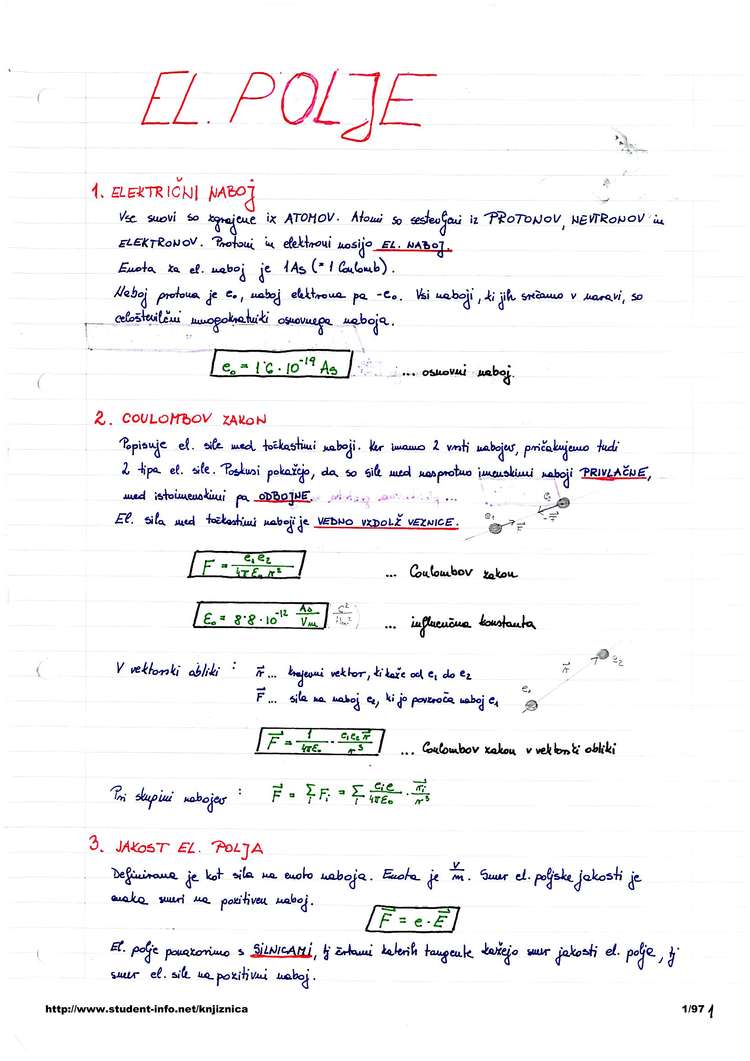 EL. POLJE
1. ELEKTRIČNI NABOJ
Vse snovi so zgrajene iz ATOMOV. Atomi so sestavljeni iz PROTONOV, NEVTRONOV in
ELEKTRONOV. Protoni in elektroni nosijo EL. NABOJ.
Enota za el. naboj je 1As (= 1 Coulomb).
Naboj protona je e₀, naboj elektrona pa -e₀. Vsi naboji, ki jih srečamo v naravi, so
celoštevilčni mnogokratniki osnovnega naboja.
e₀ = 1'6 · 10⁻¹⁹ As ... osnovni naboj.
2. COULOMBOV ZAKON
Popisuje el. sile med točkastimi naboji. Ker imamo 2 vrsti nabojev, pričakujemo tudi
2 tipa el. sile. Poskusi pokažejo, da so sile med nasprotno imenskimi naboji PRIVLAČNE,
med istoimenskimi pa ODBOJNE.
El. sila med točkastimi naboji je VEDNO VZDOLŽ VEZNICE.
e₁ F⃗ -F⃗ e₂
F = e₁e₂ / 4πε₀ r² ... Coulombov zakon
ε₀ = 8'8 · 10⁻¹² As/Vm ... influenčna konstanta
V vektorski obliki : r⃗ ... krajevni vektor, ki kaže od e₁ do e₂
F⃗ ... sila na naboj e₂, ki jo povzroča naboj e₁
e₁ r⃗ e₂
F⃗ = 1/4πε₀ · e₁e₂r⃗/r³ ... Coulombov zakon v vektorski obliki
Pri skupini nabojev : F⃗ = Σᵢ Fᵢ = Σᵢ eᵢe/4πε₀ · r⃗ᵢ/r³
3. JAKOST EL. POLJA
Definirana je kot sila na enoto naboja. Enota je V/m. Smer el. poljske jakosti je
enaka smeri na pozitiven naboj.
F⃗ = e · E⃗
El. polje ponazorimo s SILNICAMI, tj črtami katerih tangente kažejo smer jakosti el. polja, tj
smer el. sile na pozitivni naboj.
http://www.student-info.net/knjiznica 1/97 1